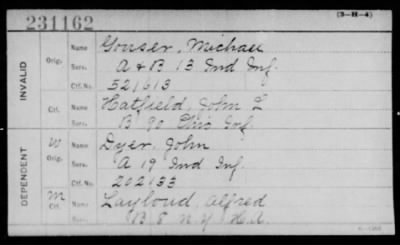 231162
(3-H-4)
INVALID
Orig.
Name Gouser, Michael
Serv. A & B 13 Ind Inf.
Ctf. No. 521613
Ctf.
Name Hatfield, John L
Serv. B 90 Ohio Inf.
DEPENDENT
W
Orig.
Name Dyer, John
Serv. A 19 Ind Inf.
Ctf. No. 202133
M
Ctf.
Name Layloud, Alfred
Serv. B 8 N.Y. H.A.